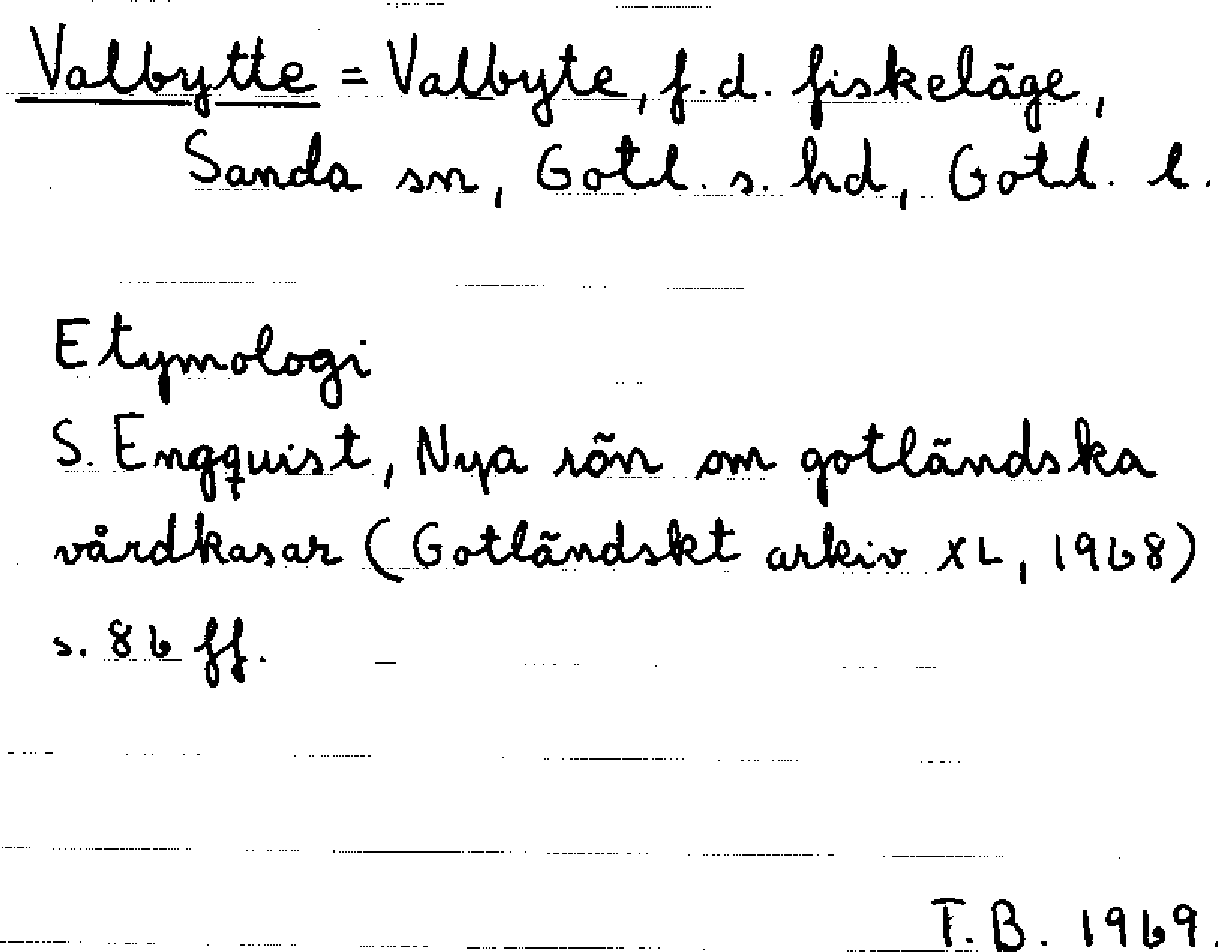 Valbytte = Valbyte, f.d. fiskeläge,
Sanda sn, Gotl. s. hd, Gotl. l.
Etymologi
S. Engquist, Nya rön om gotländska
vårdkasar (Gotländskt arkiv XL, 1968)
s. 86 ff.
T.B. 1969.